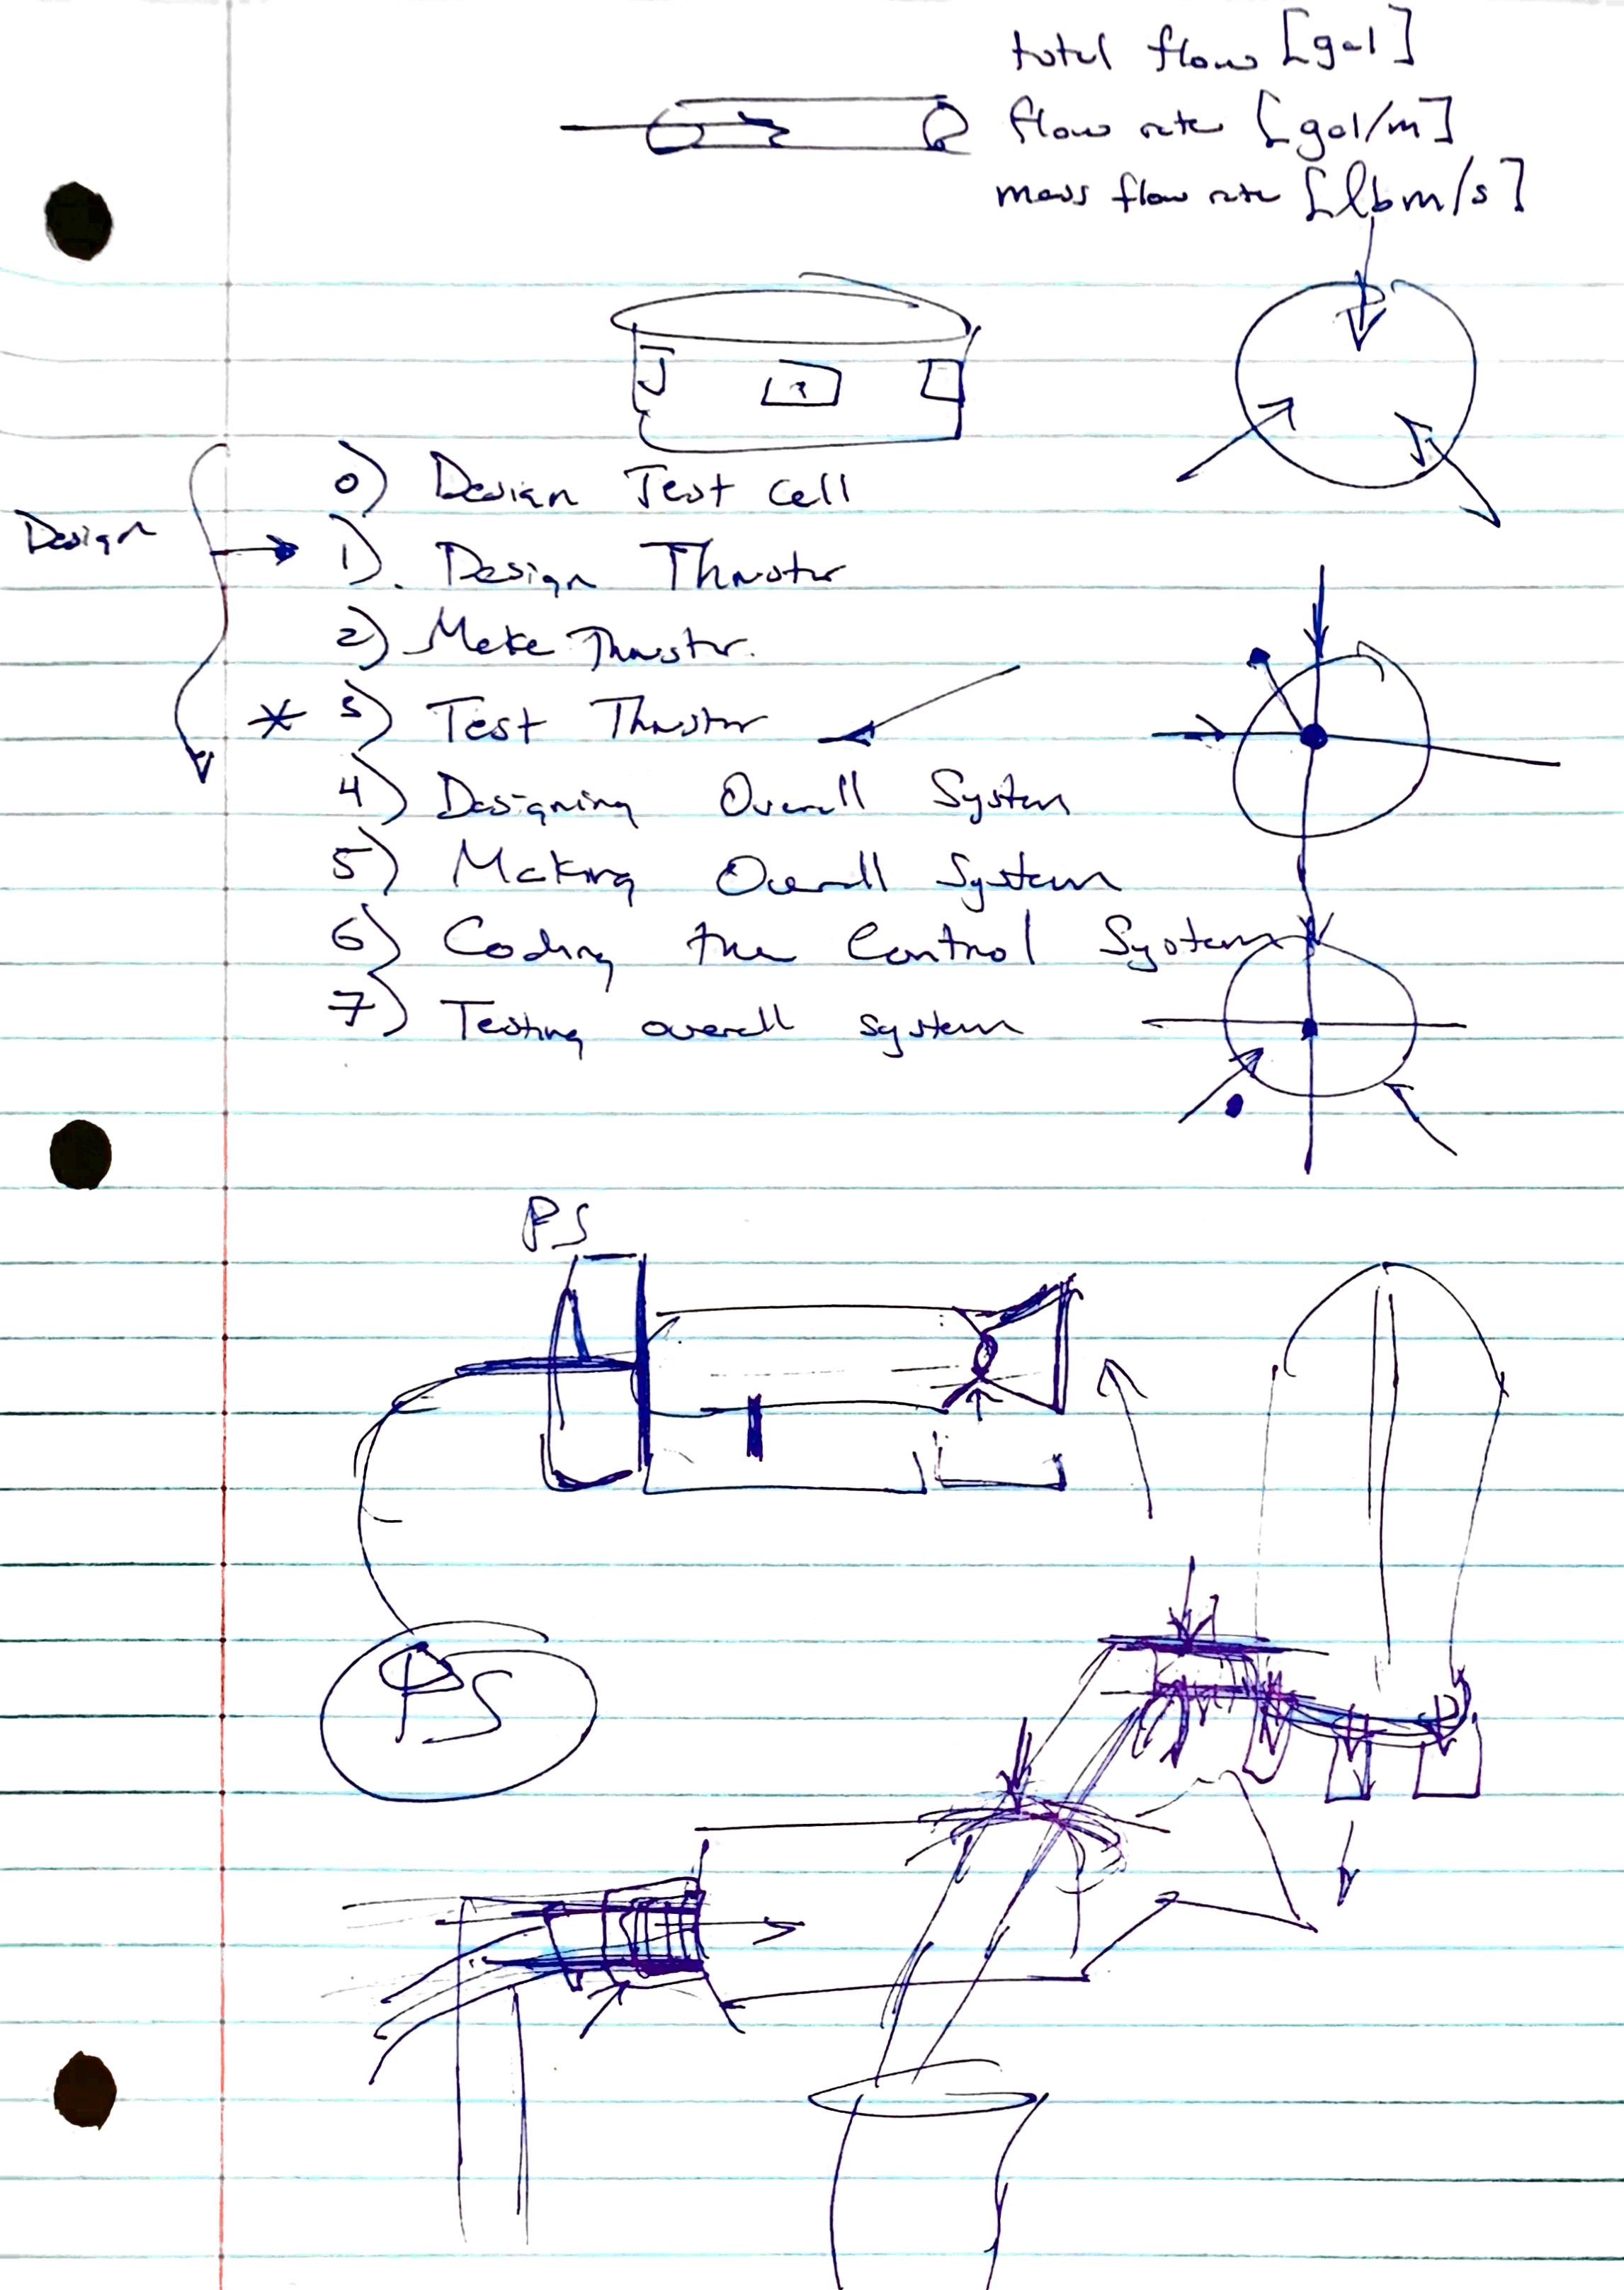 total flow [gal]
flow rate [gal/m]
mass flow rate [lbm/s]
0) Design Test Cell
Design
1). Design Thruster
2) Make Thruster.
* 3) Test Thruster
4) Designing Overall System
5) Making Overall System
6) Coding the Control System
7) Testing overall system
PS
PS